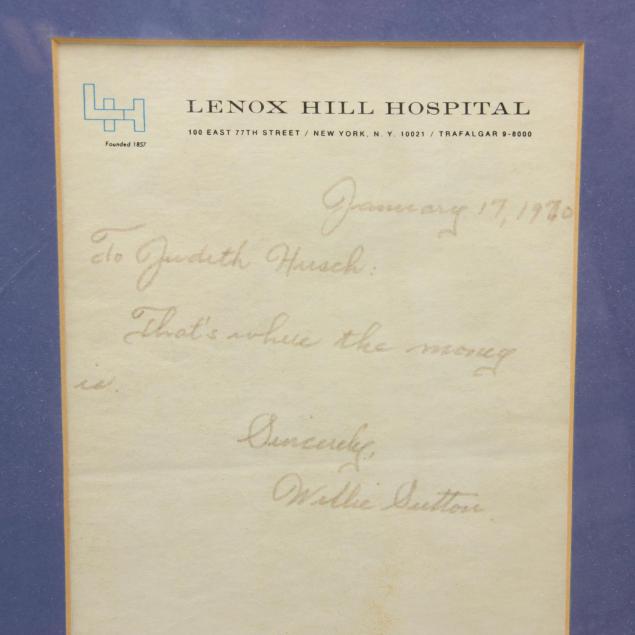 LH
LENOX HILL HOSPITAL
100 EAST 77TH STREET / NEW YORK, N. Y. 10021 / TRAFALGAR 9-8000
Founded 1857
January 17, 1970
To Judith Husch:
That's where the money
is.
Sincerely,
Willie Sutton